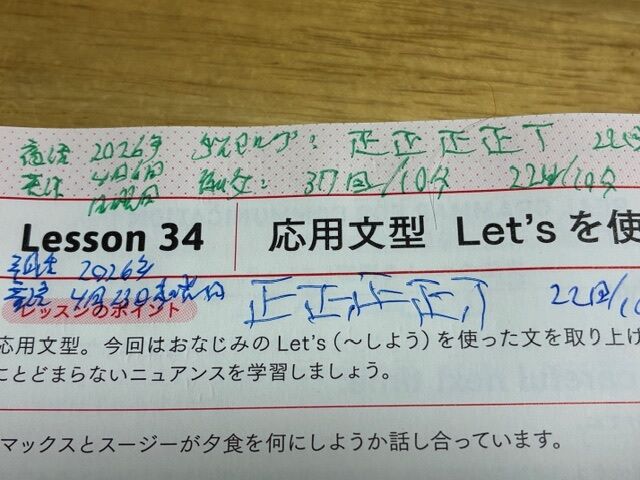 2026年 : 正正正正丅 22回
4月6日 : 37回/10分 22回/10分
月曜日
Lesson 34 応用文型 Let's を使
2026年
4月23日木曜 正正正正丅 22回/10
レッスンのポイント
応用文型。今回はおなじみの Let's（〜しよう）を使った文を取り上げ
ことどまらないニュアンスを学習しましょう。
マックスとスージーが夕食を何にしようか話し合っています。